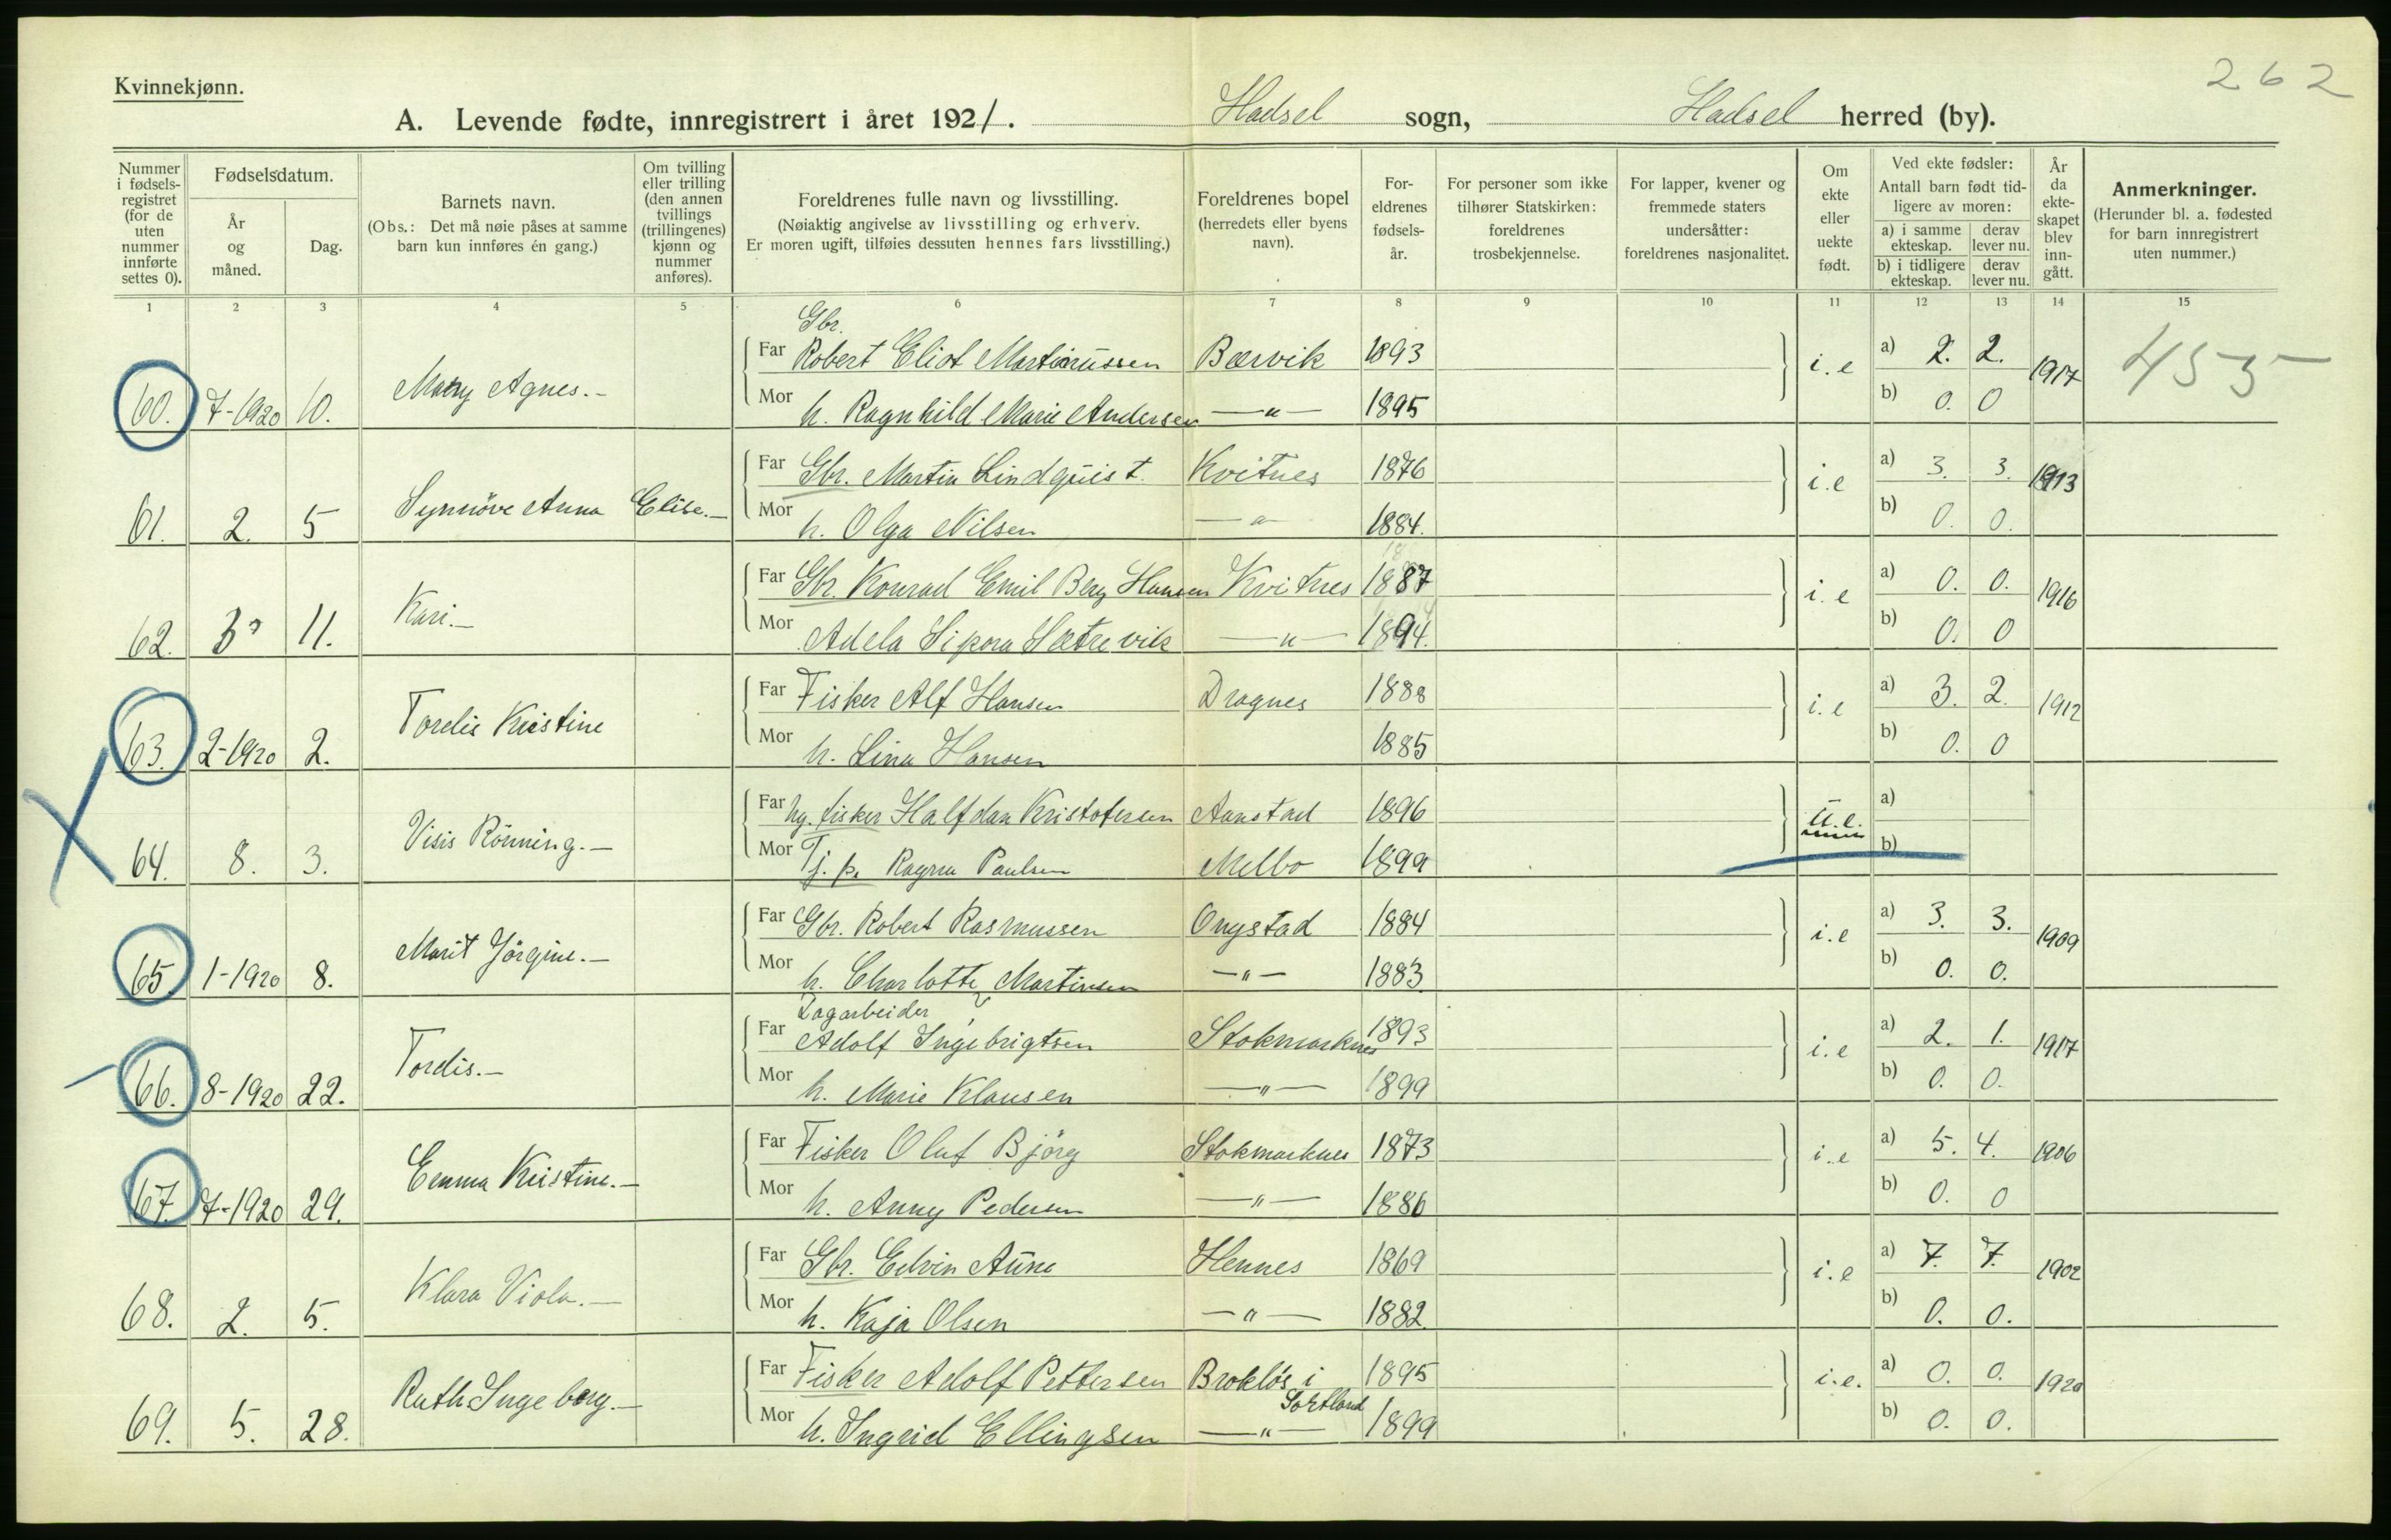 262
Kvinnekjønn.
A. Levende fødte, innregistrert i året 1921. Hadsel sogn, Hadsel herred (by).
Nummer i fødsels-registret (for de uten nummer innførte settes 0).
Fødselsdatum.
År og måned.
Dag.
Barnets navn.
(Obs.: Det må nøie påses at samme barn kun innføres én gang.)
Om tvilling eller trilling (den annen tvillings (trillingenes) kjønn og nummer anføres).
Foreldrenes fulle navn og livsstilling.
(Nøiaktig angivelse av livsstilling og erhverv.
Er moren ugift, tilføies dessuten hennes fars livsstilling.)
Foreldrenes bopel (herredets eller byens navn).
For-eldrenes fødsels-år.
For personer som ikke tilhører Statskirken: foreldrenes trosbekjennelse.
For lapper, kvener og fremmede staters undersåtter: foreldrenes nasjonalitet.
Om ekte eller uekte født.
Ved ekte fødsler:
Antall barn født tid-ligere av moren:
a) i samme ekteskap. derav lever nu.
b) i tidligere ekteskap. derav lever nu.
År da ekte-skapet blev inn-gått.
Anmerkninger.
(Herunder bl. a. fødested for barn innregistrert uten nummer.)
1 2 3 4 5 6 7 8 9 10 11 12 13 14 15
Gbr.
60. 7-1920 10. Mary Agnes.- Far Robert Eliot Martinussen Bærvik 1893 i.e a) 2. 2. 1917 455
Mor h. Ragnhild Marie Andersen —"— 1895 b) 0. 0
61. 2. 5 Synnöve Anna Elise.- Far Gbr. Martin Lindquist. Kvitnes 1876 i.e a) 3. 3. 1913
Mor h. Olga Nilsen —"— 1884. b) 0. 0.
62. 3 11. Kari.- Far Gbr. Konrad Emil Berg Hansen Kvitnes 1887 i.e a) 0. 0. 1916
Mor Adela Sipora Sætrevik —"— 1894. b) 0. 0
63. 2-1920 2. Tordis Kristine Far Fisker Alf Hansen Dragnes 1888 i.e a) 3. 2. 1912
Mor h. Lina Hansen 1885 b) 0. 0
64. 8. 3. Visis Rönning.- Far Ug. fisker Halfdan Kristofersen Aanstad 1896 u.e. a)
Mor Tj. p. Ragna Paulsen Melbo 1899 b)
65 1-1920 8. Marit Jörgine.- Far Gbr. Robert Rasmussen Ongstad 1884 i.e a) 3. 3. 1909
Mor h. Charlotte Martinsen —"— 1883 b) 0. 0.
Lagarbeider
66. 8-1920 22. Tordis.- Far Adolf Ingebrigtsen Stokmarknes 1893 i.e a) 2. 1. 1917
Mor h. Marie Klausen —"— 1899 b) 0. 0.
67. 7-1920 29. Emma Kristine.- Far Fisker Oluf Björg Stokmarknes 1873 i.e a) 5. 4. 1906
Mor h. Anny Pedersen —"— 1886 b) 0. 0
68. 2. 5. Klara Viola.- Far Gbr. Edvin Aune Hennes 1869 i.e a) 7. 7. 1902
Mor h. Kaja Olsen —"— 1882 b) 0. 0.
69. 5. 28. Ruth Ingeborg.- Far Fisker Adolf Pettersen Brokløs i Sortland 1895 i.e. a) 0. 0. 1920
Mor h. Ingrid Ellingsen —"— 1899 b) 0. 0.